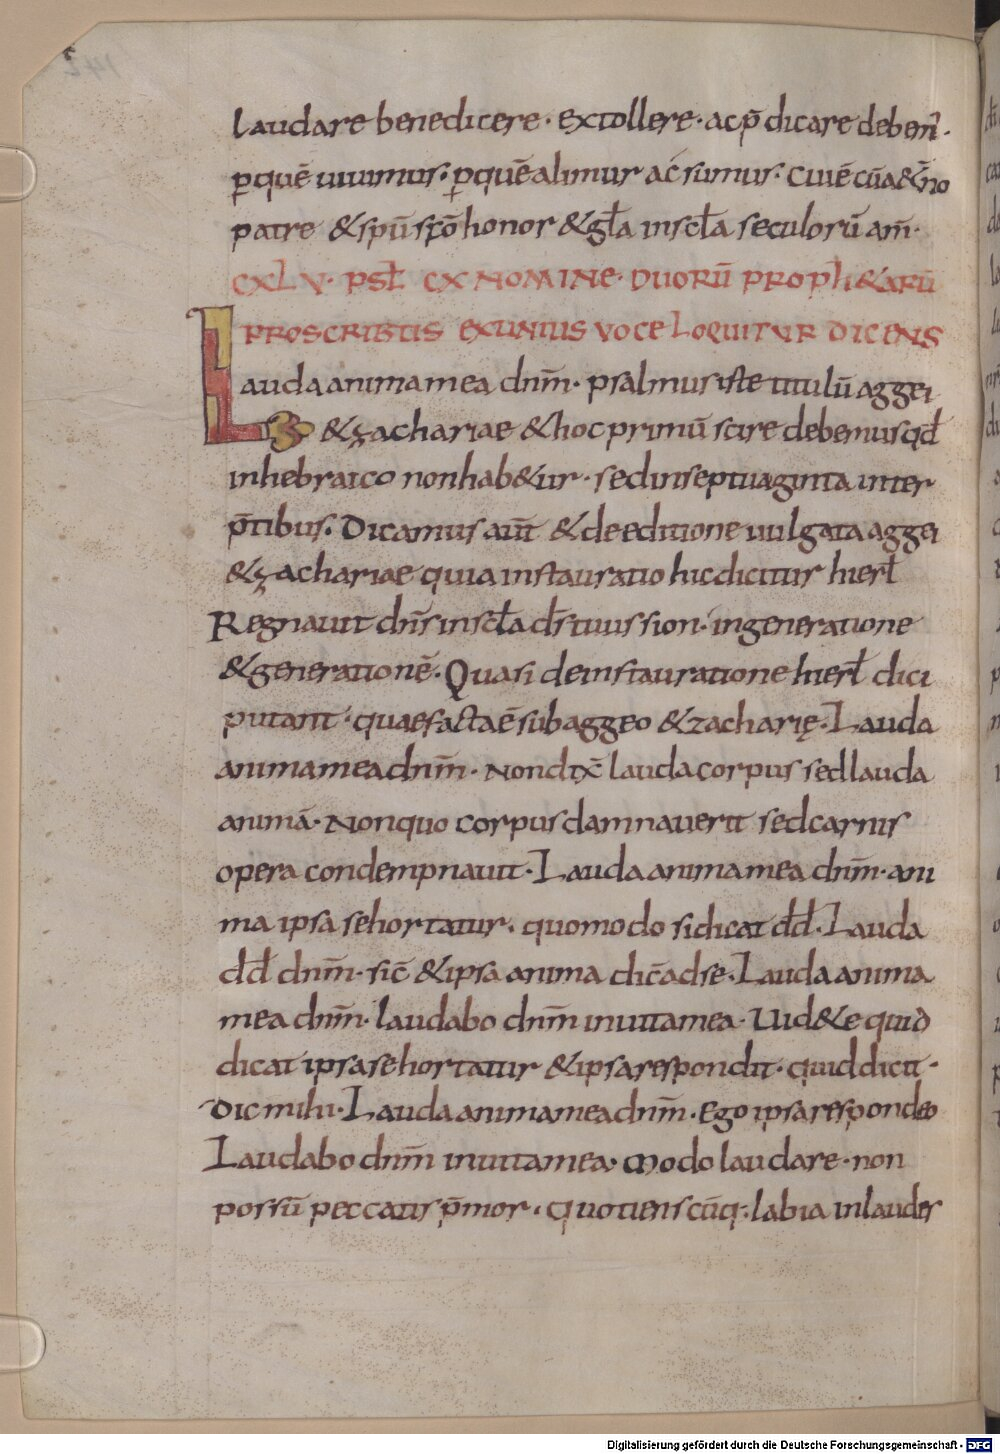 laudare benedicere· extollere· acp̄dicare deben̄t·
ꝑquē uiuimus· ꝑquē alimur ac sumus· Cui ē cū a&ɲ̄o
patre &spū scō honor &gła insc̄ła seculorū am̄·
CXLV· PSŁ EX NOMINE· DUORŪ PROPH&ARŪ
PROSCRIBTIS EXUNIUS VOCE LOQUITVR DICENS
Lauda anima mea dnm̄· psalmus iste titulū aggei
&zachariae &hoc primū scire debemus qd̄
inhebraico nonhab&ur· sed inseptuaginta inter
p̄tibus. Dicamus aūt &de editione uulgata aggei
&zachariae quia instauratio hic dicitur hierł
Regnauit dn̄s insc̄ła ds̄ tuus sion· ingeneratione
&generationē. Quasi de instauratione hierł dici
putant· quae facta ē sub aggeo &zacharię. Lauda
anima mea dnm̄· Nondix̄ lauda corpus sed lauda
animā· Nonquo corpus damnauerit sed carnis
opera condempnauit· Lauda anima mea dnm̄· ani
ma ipsa se hortatur· quomodo si dicat dd̄. Lauda
dd̄ dnm̄· sic̄ &ipsa anima dic̄ ad se. Lauda anima
mea dnm̄· laudabo dnm̄ inuita mea· Uid&e quid
dicat ipsa se hortatur &ipsa respondit· quid dicit·
Dic mihi· Lauda anima mea dnm̄· Ego ipsa respondeo
Laudabo dnm̄ inuita mea· Modo laudare· non
possū peccatis p̄mor· quotiens cūq· labia inlaudes
Digitalisierung gefördert durch die Deutsche Forschungsgemeinschaft - DFG